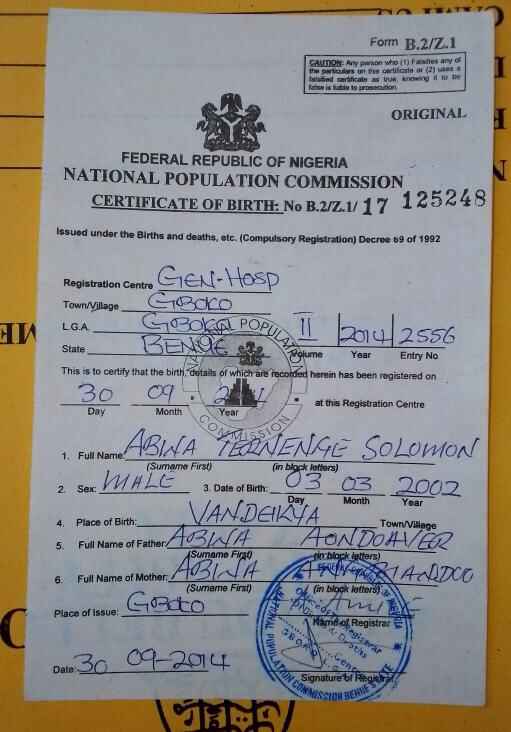 Form B.2/Z.1
CAUTION: Any person who (1) Falsifies any of
the particulars on this certificate or (2) uses a
falsified certificate as true, knowing it to be
false is liable to prosecution.
ORIGINAL
FEDERAL REPUBLIC OF NIGERIA
NATIONAL POPULATION COMMISSION
CERTIFICATE OF BIRTH: No B.2/Z.1/ 17 125248
Issued under the Births and deaths, etc. (Compulsory Registration) Decree 69 of 1992
Registration Centre GEN-HOSP
Town/Village GBOKO
L.G.A. GBOKO II 2014 2556
State BENUE Volume Year Entry No
This is to certify that the birth, details of which are recorded herein has been registered on
30 09 at this Registration Centre
Day Month Year
NATIONAL POPULATION COMMISSION
1. Full Name ABWA TERNENGE SOLOMON
(Surname First) (in block letters)
2. Sex: MALE 3. Date of Birth: 03 03 2002
Day Month Year
4. Place of Birth: VANDEIKYA Town/Village
5. Full Name of Father: ABWA AONDOAVER
(Surname First) (in block letters)
6. Full Name of Mother: ABWA
(Surname First) (in block letters)
Place of Issue: GBOKO
Name of Registrar
Date: 30 09-2014
Signature of Registrar
FEDERAL REPUBLIC OF NIGERIA
NATIONAL POPULATION COMMISSION BENUE STATE